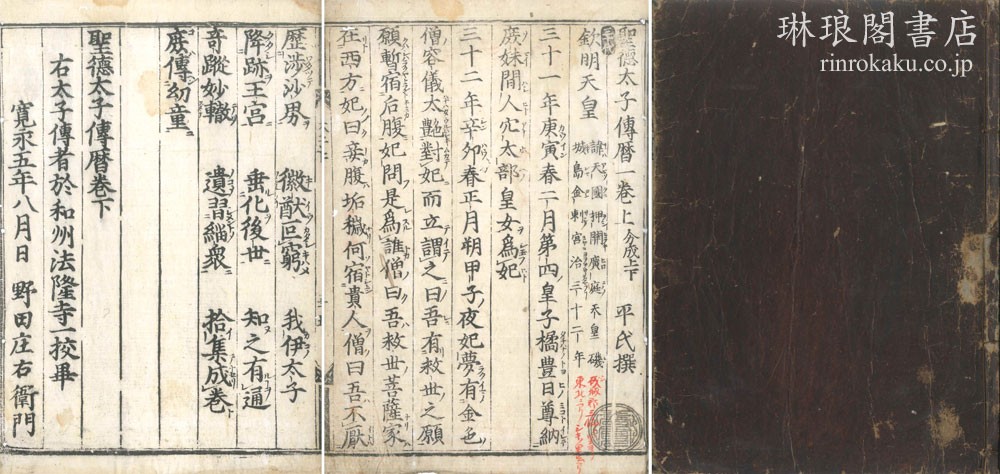 琳琅閣書店
rinrokaku.co.jp
聖德太子傳曆一卷上 分成上下 平氏撰
欽明天皇 諱天國押開廣庭天皇磯
城島金 東宮治三十二年
三十一年庚寅春二月第四皇子橘豊日尊納
庶妹間人穴太部皇女爲妃
三十二年辛卯春正月朔甲子夜妃夢有金色
僧容儀太艶對妃而立謂之曰吾有救世之願
願暫宿后腹妃問是爲誰僧曰吾救世菩薩家
在西方妃曰妾腹垢穢何宿貴人僧曰吾不厭
歷渉沙界 徽猷叵窮 我伊太子
降跡王宮 垂化後世 知之有通
奇蹤妙轍 遺習緇衆 拾集成卷
庶傳幼童
聖德太子傳曆卷下
右太子傳者於和州法隆寺一挍畢
寛永五年八月日 野田庄右衛門